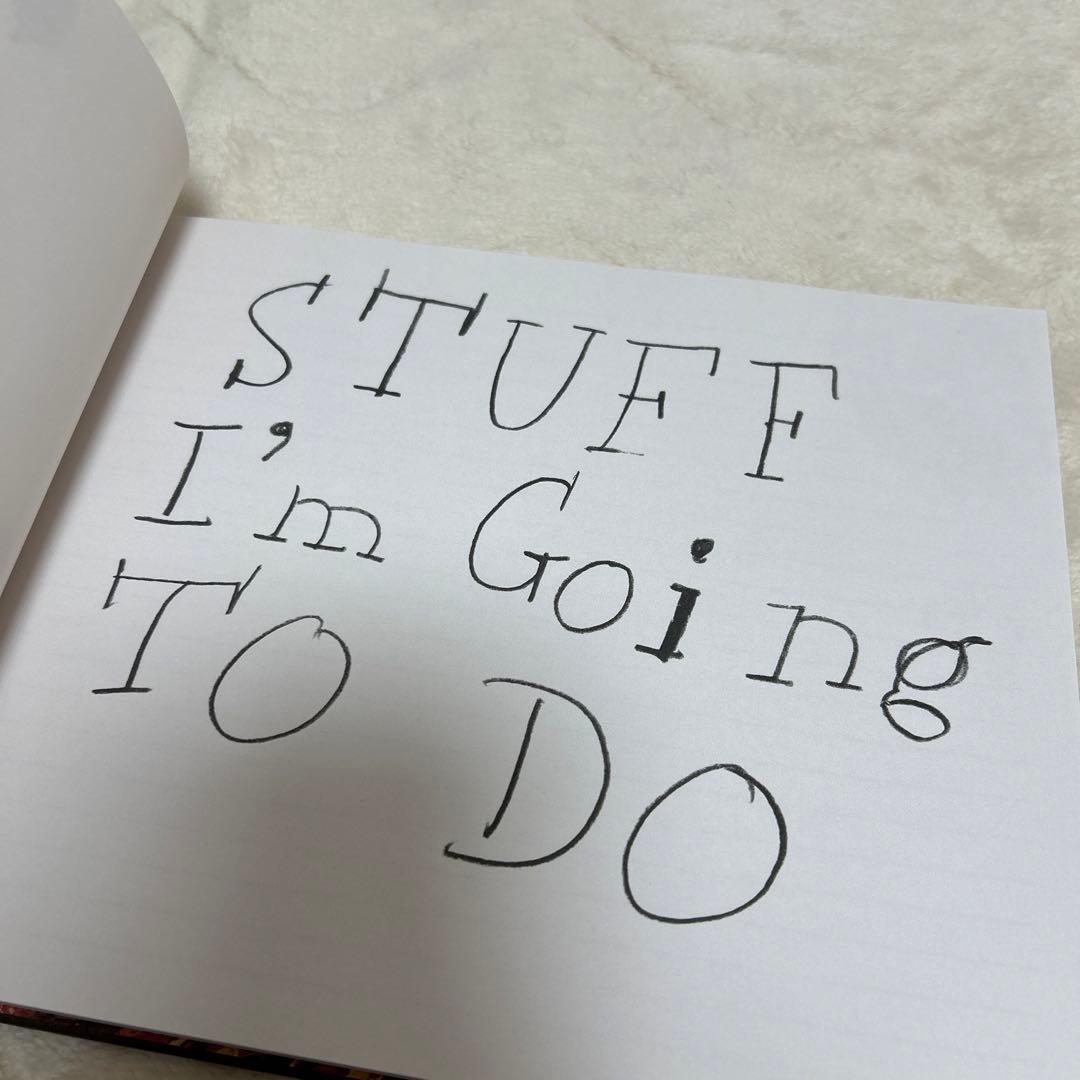 STUFF
I'm Going
TO DO